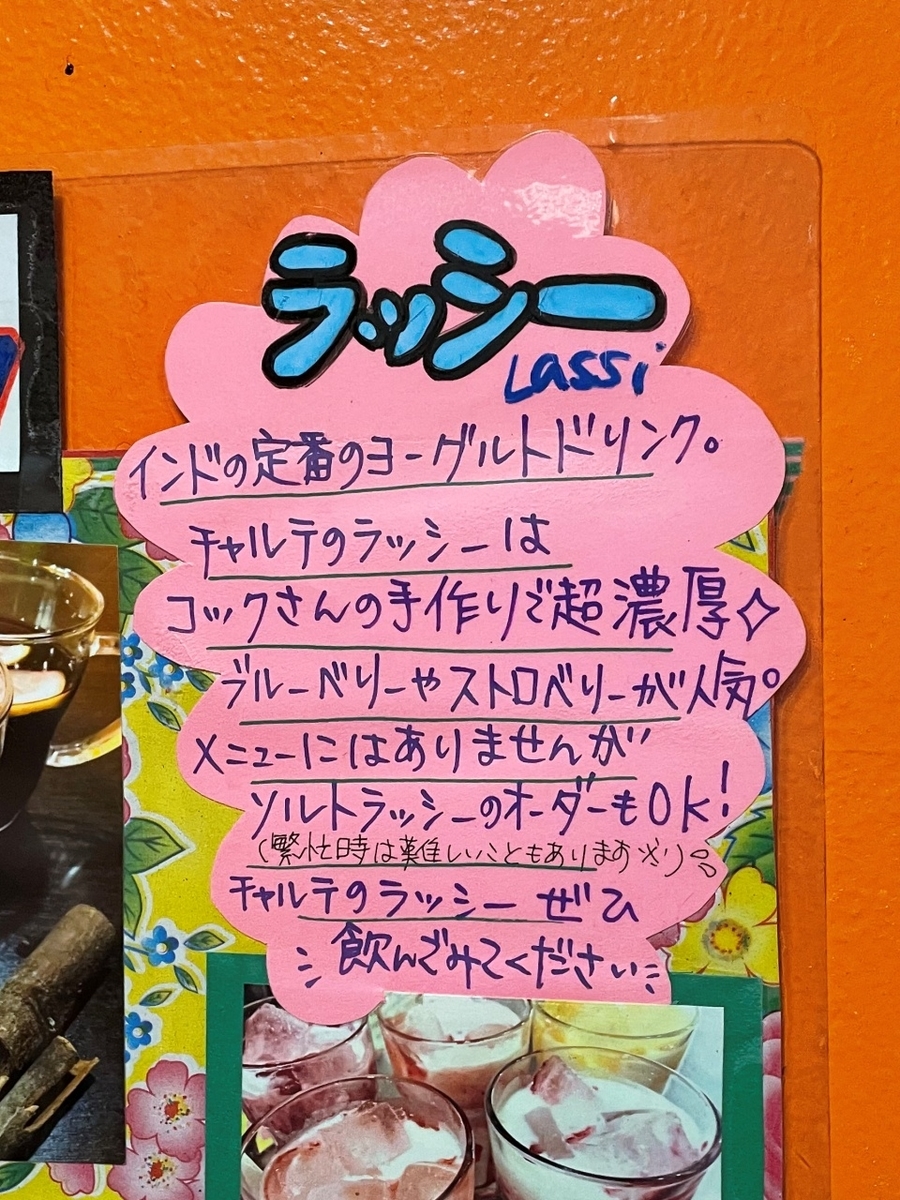 ラッシー
Lassi
インドの定番のヨーグルトドリンク。
チャルテのラッシーは
コックさんの手作りで超濃厚✧
ブルーベリーやストロベリーが人気。
メニューにはありませんが
ソルトラッシーのオーダーもOK!
(繁忙時は難しいこともあります
チャルテのラッシー ぜひ
飲んでみてください